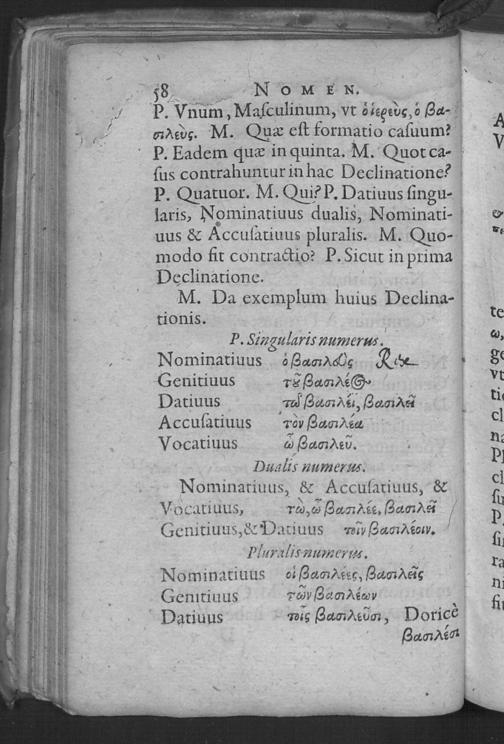 58 NOMEN.
P. Vnum, Maſculinum, vt ὁ ἱερεὺς, ὁ βα-
σιλεὺς. M. Quæ eſt formatio caſuum?
P. Eadem quæ in quinta. M. Quot ca-
ſus contrahuntur in hac Declinatione?
P. Quatuor. M. Qui? P. Datiuus ſingu-
laris, Nominatiuus dualis, Nominati-
uus & Accuſatiuus pluralis. M. Quo-
modo fit contractio? P. Sicut in prima
Declinatione.
M. Da exemplum huius Declina-
tionis.
P. Singularis numerus.
Nominatiuus ὁ βασιλεὺς
Genitiuus τοῦ βασιλέως
Datiuus τῷ βασιλέϊ, βασιλεῖ
Accuſatiuus τὸν βασιλέα
Vocatiuus ὦ βασιλεῦ.
Dualis numerus.
Nominatiuus, & Accuſatiuus, &
Vocatiuus, τὼ, ὦ βασιλέε, βασιλεῖ
Genitiuus, & Datiuus τοῖν βασιλέοιν.
Pluralis numerus.
Nominatiuus οἱ βασιλέες, βασιλεῖς
Genitiuus τῶν βασιλέων
Datiuus τοῖς βασιλεῦσι, Doricè
βασιλέσι